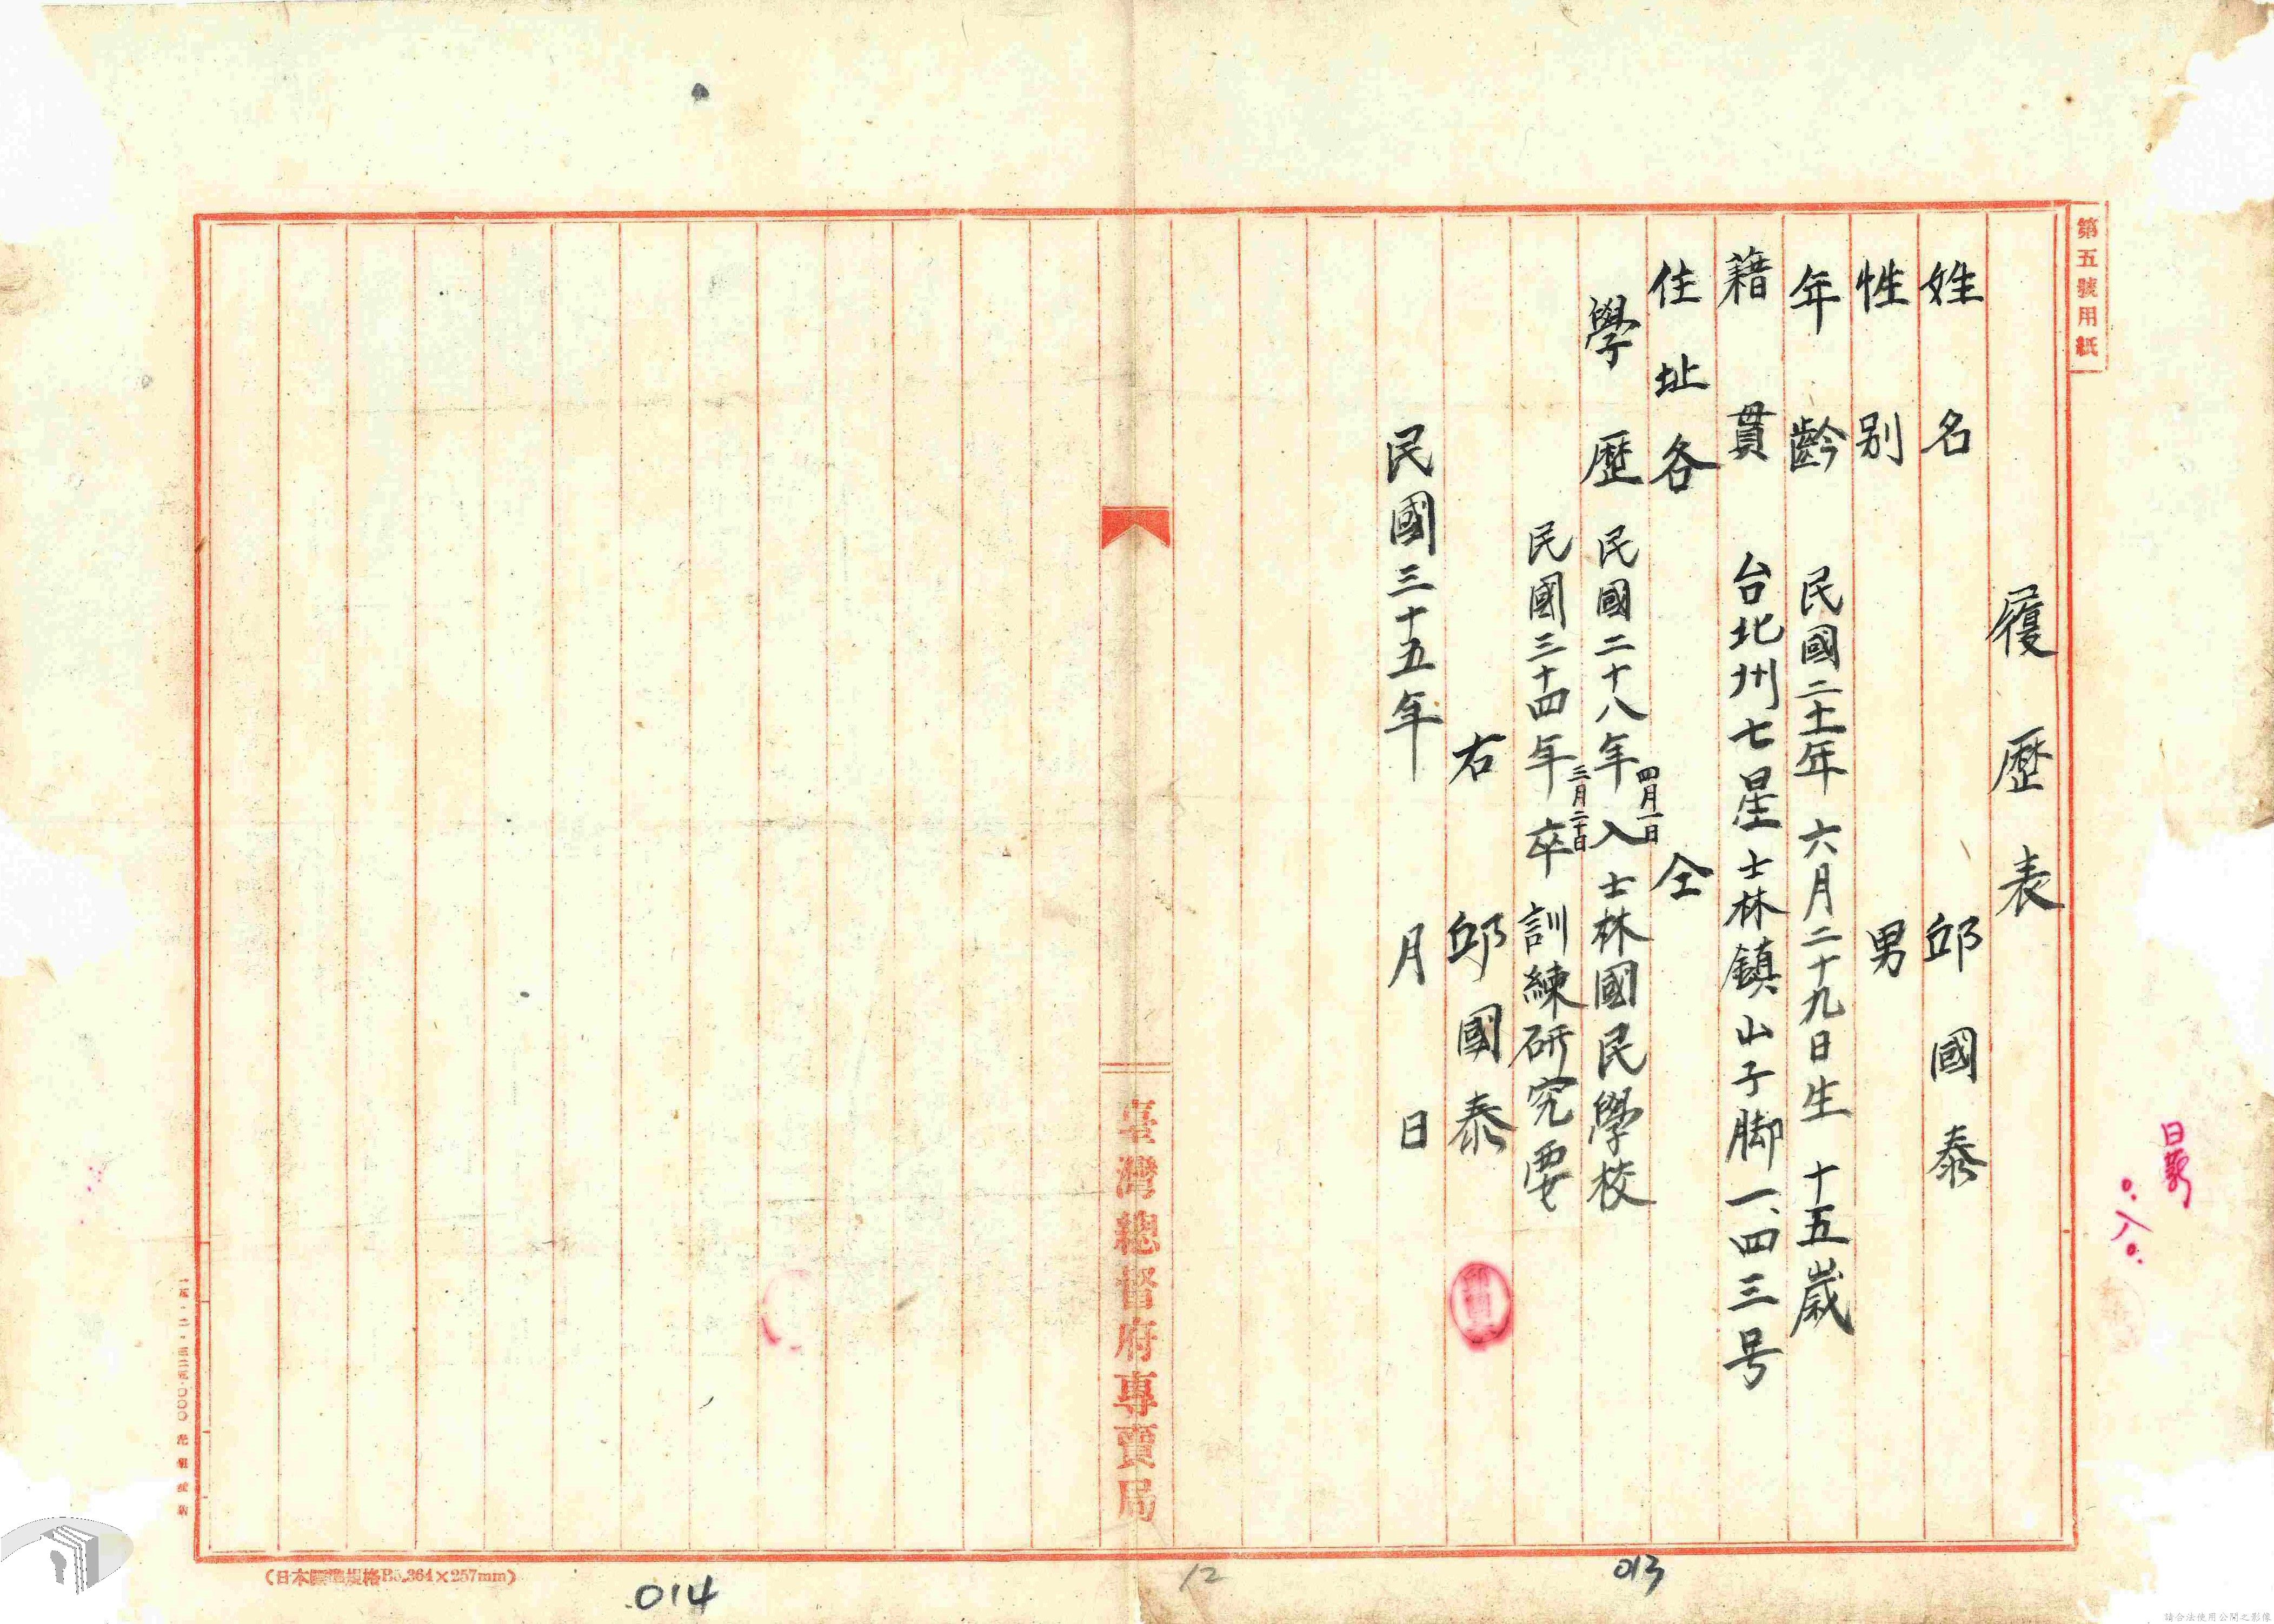 第五號用紙
履歷表
姓名 邱國泰
性別 男
年齡 民國二十一年 六月二十九日生 十五歲
籍貫 台北州七星士林鎮山子脚一、四三号
住址各 仝
學歷 民國二十八年四月一日入士林國民學校
民國三十四年三月二十日卒 訓練研究要
右 邱國泰
民國三十五年 月 日
臺灣總督府專賣局
(日本標準規格B5.364×257mm)
013
12
014
請合法使用公開之影像